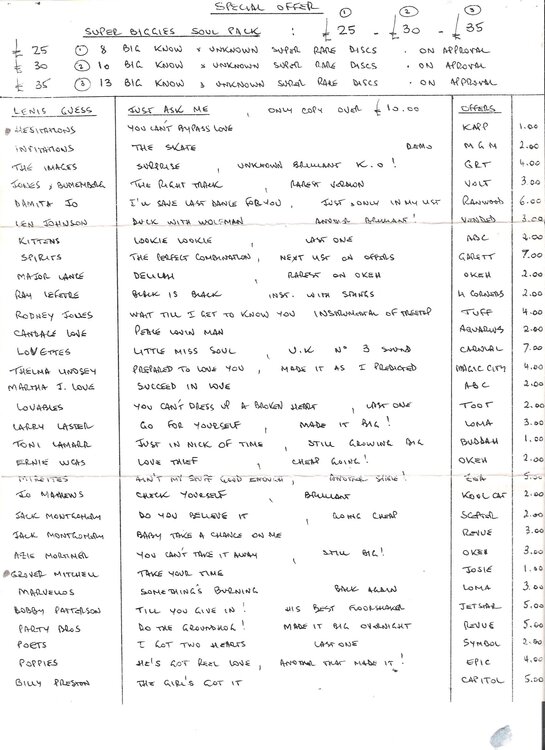 SPECIAL OFFER ① ② ③
SUPER BIGGIES SOUL PACK : £25 - £30 - £35
£ 25 ① 8 BIG KNOW & UNKNOWN SUPER RARE DISCS. ON APPROVAL
£ 30 ② 10 BIG KNOW & UNKNOWN SUPER RARE DISCS. ON APPROVAL
£ 35 ③ 13 BIG KNOW & UNKNOWN SUPER RARE DISCS. ON APPROVAL
LENIS GUESS JUST ASK ME, ONLY COPY OVER £10.00 OFFERS
HESITATIONS YOU CAN'T BYPASS LOVE KAPP 1.00
INVITATIONS THE SKATE DEMO MGM 2.00
THE IMAGES SURPRISE, UNKNOWN BRILLIANT K.O! GRT 4.00
JONES & BLUMEMBERG THE RIGHT TRACK, RAREST VERSION VOLT 3.00
DAMITA JO I'LL SAVE LAST DANCE FOR YOU, JUST & ONLY IN MY LIST RANWOOD 6.00
LEN JOHNSON DUCK WITH WOLFMAN ANOTHER BRILLIANT! 3.00
KITTENS LOOKIE LOOKIE, LAST ONE ABC 2.00
SPIRITS THE PERFECT COMBINATION, NEXT LIST ON OFFERS GARETT 7.00
MAJOR LANCE DELILAH, RAREST ON OKEH OKEH 2.00
RAY LEFEVRE BLACK IS BLACK INST. WITH STRINGS 4 CORNERS 2.00
RODNEY JONES WAIT TILL I GET TO KNOW YOU INSTRUMENTAL OF TREETOP TUFF 4.00
CANDACE LOVE PEACE LOVIN MAN AQUARIUS 2.00
LOVETTES LITTLE MISS SOUL, U.K Nº 3 SOUND CARNIVAL 7.00
THELMA LINDSEY PREPARED TO LOVE YOU, MADE IT AS I PREDICTED MAGIC CITY 4.00
MARTHA J. LOVE SUCCEED IN LOVE ABC 2.00
LOVABLES YOU CAN'T DRESS UP A BROKEN HEART, LAST ONE TOOT 2.00
LARRY LASTER GO FOR YOURSELF, MADE IT BIG! LOMA 3.00
TONI LAMARR JUST IN NICK OF TIME, STILL GROWING BIG BUDDAH 1.00
ERNIE LUCAS LOVE THIEF, CHEAP GOING! OKEH 2.00
MIRETTES AIN'T MY STUFF GOOD ENOUGH, ANOTHER 5.00
JO MATHEWS CHECK YOURSELF, BRILLIANT KOOL CAT 2.00
JACK MONTGOMERY DO YOU BELIEVE IT, GOING CHEAP SCEPTER 2.00
JACK MONTGOMERY BABY TAKE A CHANCE ON ME REVUE 3.00
AZIE MORTIMER YOU CAN'T TAKE IT AWAY, STILL BIG! OKEH 3.00
GROVER MITCHELL TAKE YOUR TIME JOSIE 1.00
MARVELLOS SOMETHING'S BURNING BACK AGAIN LOMA 3.00
BOBBY PATTERSON TILL YOU GIVE IN! HIS BEST FLOORSHAKER JETSTAR 5.00
PARTY BROS DO THE GROUNDHOG! MADE IT BIG OVERNIGHT REVUE 5.00
POETS I GOT TWO HEARTS LAST ONE SYMBOL 2.00
POPPIES HE'S GOT REEL LOVE, ANOTHER THAT MADE IT! EPIC 4.00
BILLY PRESTON THE GIRL'S GOT IT CAPITOL 5.00